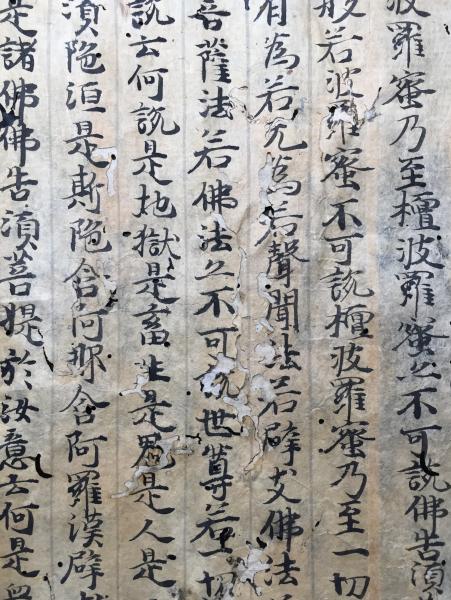 波羅蜜乃至檀波羅蜜亦不可說佛告須
般若波羅蜜不可說檀波羅蜜乃至一切
有為若无為若聲聞法若辟支佛法
菩薩法若佛法亦不可說世尊若一切
說云何說是地獄是畜生是鬼是人是
須陁洹是斯陁含阿那含阿羅漢辟
是諸佛佛告須菩提於汝意云何是眾